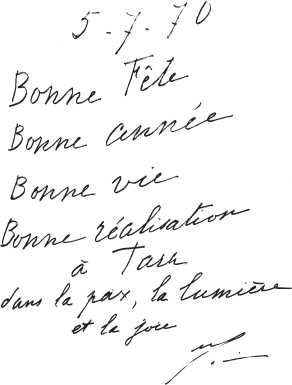 5-7-70
Bonne Fête
Bonne année
Bonne vie
Bonne réalisation
à Tara
dans la paix, la lumière
et la joie